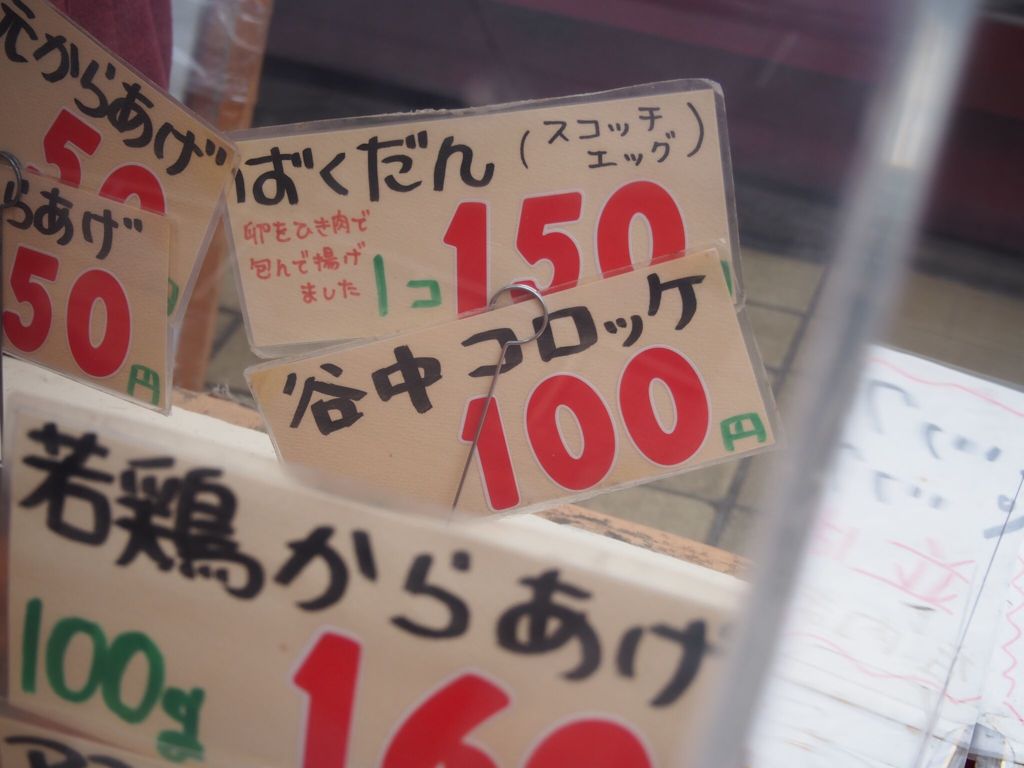 元からあげ
50
らあげ
50
円
ばくだん
(スコッチ
エッグ)
卵をひき肉で
包んで揚げ
ました
1コ
150
谷中コロッケ
100
円
若鶏からあげ
100g
160